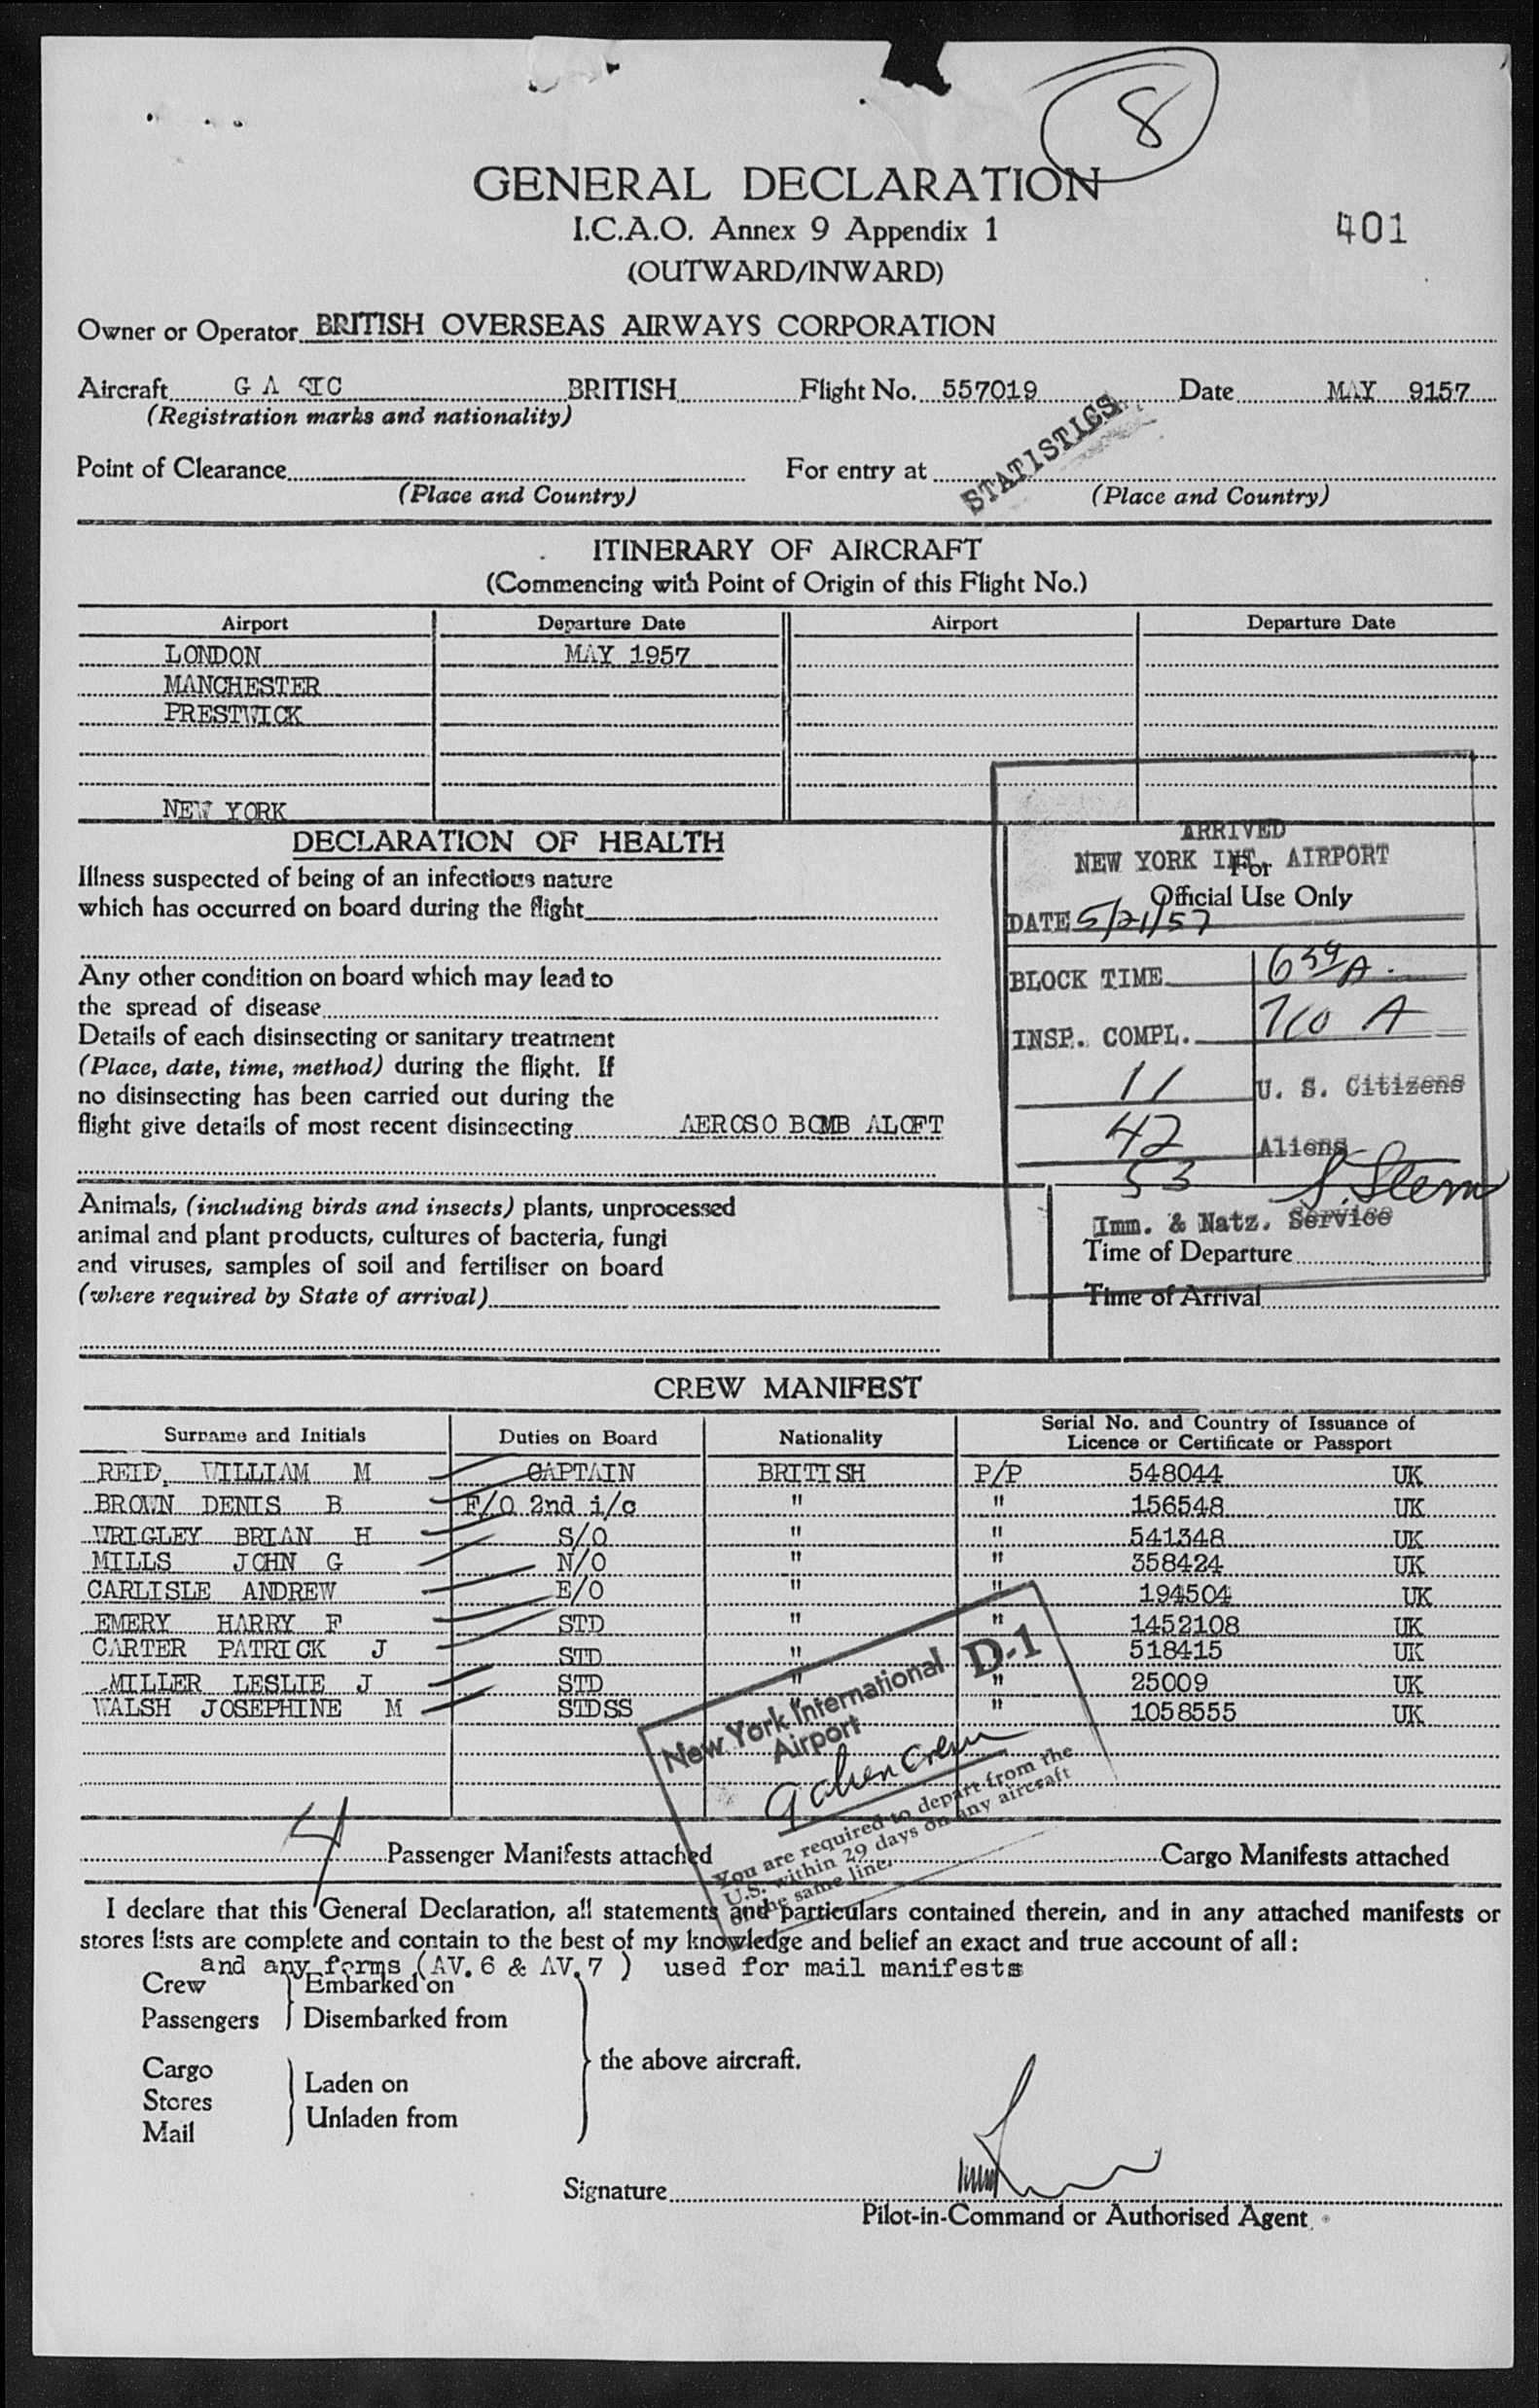 8
GENERAL DECLARATION
I.C.A.O. Annex 9 Appendix 1
401
(OUTWARD/INWARD)
Owner or Operator BRITISH OVERSEAS AIRWAYS CORPORATION
Aircraft G A IC BRITISH Flight No. 557019 Date MAY 9157
(Registration marks and nationality)
STATISTICS
Point of Clearance For entry at
(Place and Country) (Place and Country)
ITINERARY OF AIRCRAFT
(Commencing with Point of Origin of this Flight No.)
Airport Departure Date Airport Departure Date
LONDON MAY 1957
MANCHESTER
PRESTWICK
NEW YORK
DECLARATION OF HEALTH
Illness suspected of being of an infectious nature
which has occurred on board during the flight
Any other condition on board which may lead to
the spread of disease
Details of each disinsecting or sanitary treatment
(Place, date, time, method) during the flight. If
no disinsecting has been carried out during the
flight give details of most recent disinsecting AEROSO BOMB ALOFT
ARRIVED
NEW YORK INT. AIRPORT
For
Official Use Only
DATE 5/21/57
BLOCK TIME 639 A.
INSP. COMPL. 710 A
11 U. S. Citizens
42 Aliens
53 S. Stern
Imm. & Natz. Service
Time of Departure
Time of Arrival
Animals, (including birds and insects) plants, unprocessed
animal and plant products, cultures of bacteria, fungi
and viruses, samples of soil and fertiliser on board
(where required by State of arrival)
CREW MANIFEST
Surname and Initials Duties on Board Nationality Serial No. and Country of Issuance of
Licence or Certificate or Passport
REID, WILLIAM M CAPTAIN BRITISH P/P 548044 UK
BROWN DENIS B F/O 2nd i/c " " 156548 UK
WRIGLEY BRIAN H S/O " " 541348 UK
MILLS JOHN G N/O " " 358424 UK
CARLISLE ANDREW E/O " " 194504 UK
EMERY HARRY F STD " " 1452108 UK
CARTER PATRICK J STD " " 518415 UK
MILLER LESLIE J STD " " 25009 UK
WALSH JOSEPHINE M STDSS " " 1058555 UK
New York International D-1
Airport
You are required to depart from the
U.S. within 29 days on any aircraft
of the same line.
4 Passenger Manifests attached Cargo Manifests attached
I declare that this General Declaration, all statements and particulars contained therein, and in any attached manifests or
stores lists are complete and contain to the best of my knowledge and belief an exact and true account of all:
and any forms (AV.6 & AV.7 ) used for mail manifests
Crew Embarked on
Passengers Disembarked from
the above aircraft.
Cargo
Laden on
Stores
Unladen from
Mail
Signature
Pilot-in-Command or Authorised Agent